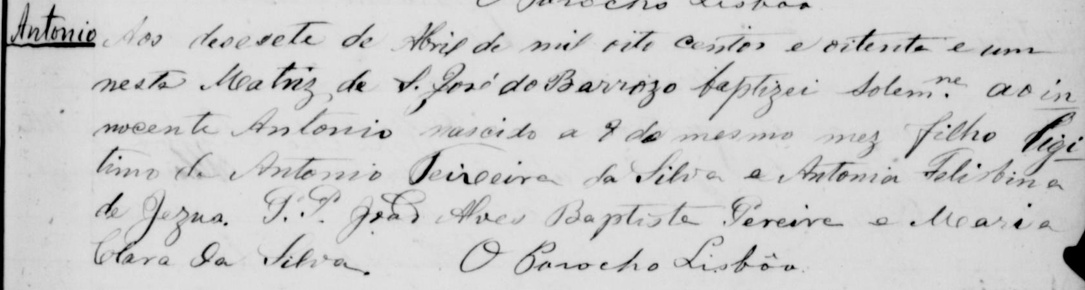 O Parocho Lisbôa
Antonio Aos desesete de Abril de mil oito centos e oitenta e um
nesta Matriz de S. José do Barrozo baptizei Solem.ne ao in
nocente Antonio nascido a 8 do mesmo mez filho Ligi
timo de Antonio Teixeira da Silva e Antonia Felisbina
de Jezus. P.P. João Alves Baptista Pereira e Maria
Clara da Silva. O Parocho Lisbôa